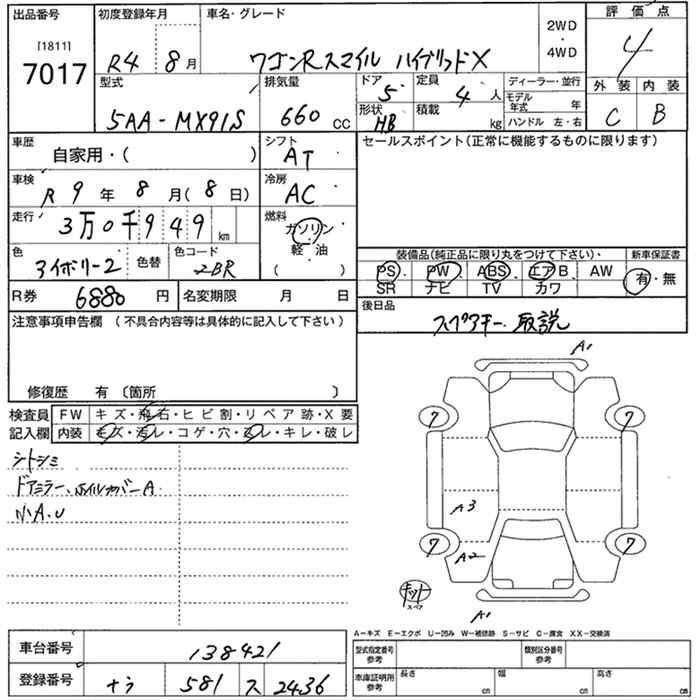 出品番号
[1811]
7017
初度登録年月
R4 8月
車名・グレード
ワゴンRスマイル ハイブリッドX
2WD
・
4WD
評価点
4
外装 内装
C B
型式
5AA-MX91S
排気量
660 CC
ドア
5
定員
4人
形状
HB
積載
kg
ディーラー・並行
モデル年式 年
ハンドル 左・右
車歴
自家用・( )
シフト
AT
車検
R9年8月(8日)
冷房
AC
走行
3万0千949km
燃料
ガソリン
軽・油
( )
色
3アイボリー2
色替
色コード
2BR
R券 6880円
名変期限 月 日
セールスポイント(正常に機能するものに限ります)
装備品(純正品に限り丸をつけて下さい)・
新車保証書
PS PW ABS エアB AW
SR ナビ TV カワ
有・無
後日品
スペアキー 取説
注意事項申告欄 (不具合内容等は具体的に記入して下さい)
修復歴 有〔箇所 〕
検査員記入欄
FW キズ・飛石・ヒビ割・リペア跡・X要
内装 キズ・汚レ・コゲ・穴・スレ・キレ・破レ
シトシミ
ドアミラー、ホイルカバーA
小A.U
A1
7 7
A3
7 A2 7
キット
スペア
A1
A-キズ E-エクボ U-凹み W-補修跡 S-サビ C-腐食 XX-交換済
車台番号 138421
登録番号 581 ス 2436
型式指定番号
参考
類別区分番号
参考
車庫証明用
参考
長さ cm
幅 cm
高さ cm